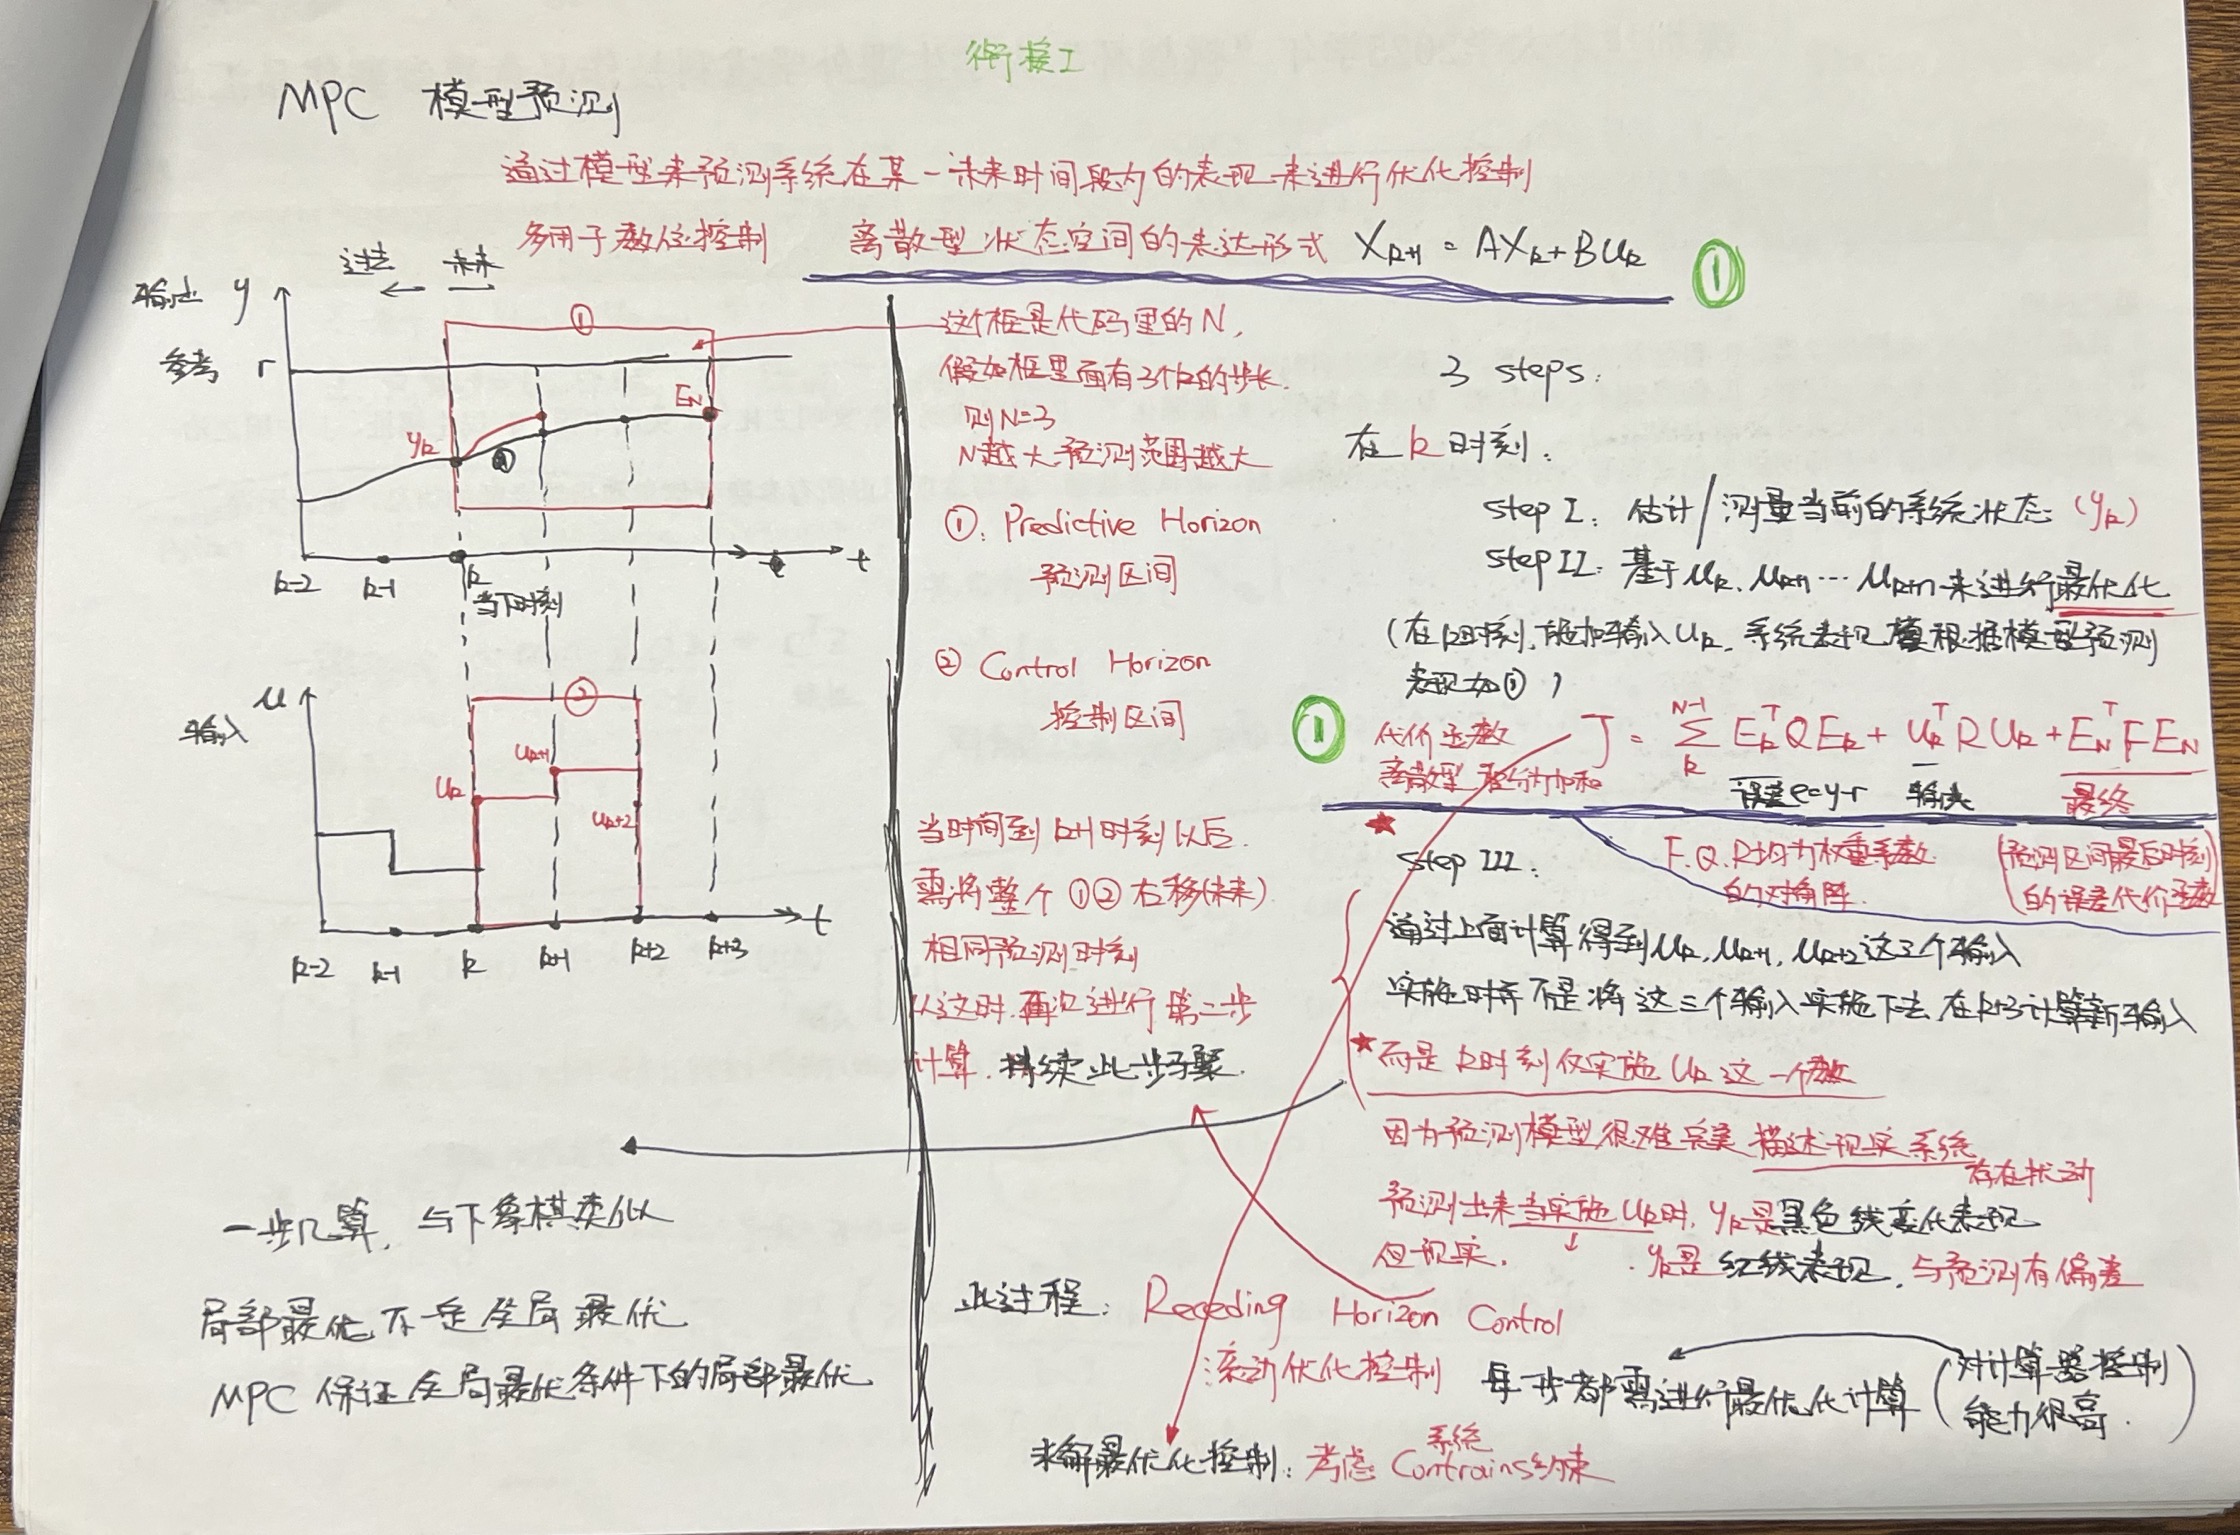 衔接I
MPC 模型预测
通过模型来预测系统在某一未来时间段内的表现来进行优化控制
多用于数位控制 离散型状态空间的表达形式 X_{k+1} = AX_k + BU_k ①
过去 未来
输出 y
参考 r
①
E_N
y_k
②
k-2 k-1 k t
当下时刻
输入 u
②
u_k
u_{k+1}
u_{k+2}
k-2 k-1 k k+1 k+2 k+3 t
一步几算, 与下象棋类似
局部最优不一定全局最优
MPC 保证全局最优条件下的局部最优
这个框是代码里的N,
假如框里面有3个k的步长.
则N=3
N越大预测范围越大
①. Predictive Horizon
预测区间
② Control Horizon
控制区间
当时间到k+1时刻以后.
需将整个①②右移(未来)
相同预测时刻
从这时.再次进行第二步
计算.持续此步骤.
3 steps:
在k时刻:
step I: 估计/测量当前的系统状态 (y_k)
step II: 基于u_k, u_{k+1}…u_{k+n}来进行最优化
(在k时刻,施加输入u_k, 系统表现根据模型预测
表现如①)
① 代价函数 J = Σ_k^{N-1} E_k^T Q E_k + U_k^T R U_k + E_N^T F E_N
离散型 积分为加和 误差e=y-r 输入 最终
F.Q.R均为权重系数 (预测区间最后时刻)
的对角阵. (的误差代价函数)
★
step III:
通过上面计算得到u_k, u_{k+1}, u_{k+2}这三个输入
实施时并不是将这三个输入实施下去,在k+3计算新输入
★而是k时刻仅实施U_k这一个数
因为预测模型很难完美描述现实系统
存在扰动
预测出来当实施U_k时, y_k是黑色线变化表现
但现实. y_k是红线表现, 与预测有偏差
此过程: Receding Horizon Control
滚动优化控制
每一步都需进行最优化计算 (对计算器控制
能力很高.)
系统
求解最优化控制: 考虑 Contrains约束